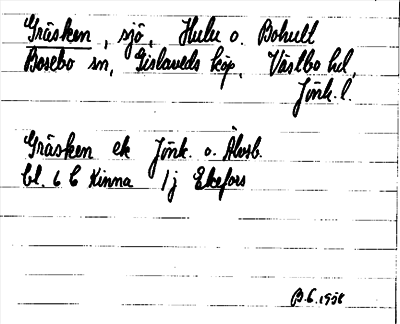 Gräsken, sjö, Hulu o. Bohult
Bosebo sn, Gislaveds köp, Västbo hd,
Jönk. l.
Gräsken ek Jönk. o. Älvsb.
bl. 6 C Kinna 1j Ekefors
B.G. 1958